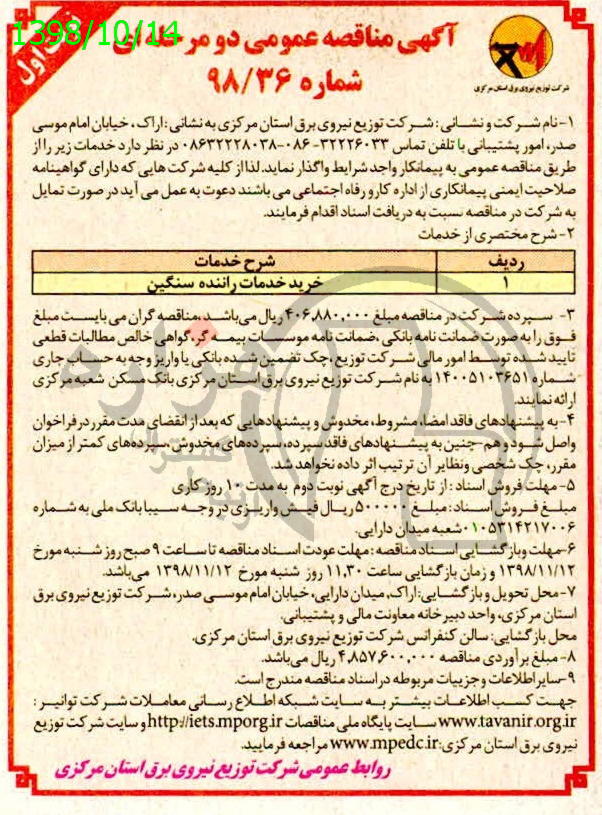 1398/10/14
اول
آگهی مناقصه عمومی دو مرحله ای
شماره ۹۸/۳۶
شرکت توزیع نیروی برق استان مرکزی
۱-نام شرکت و نشانی: شرکت توزیع نیروی برق استان مرکزی به نشانی: اراک، خیابان امام موسی
صدر، امور پشتیبانی با تلفن تماس ۳۲۲۲۶۰۳۳-۰۸۶-۰۸۶۳۲۲۲۸۰۳۸ در نظر دارد خدمات زیر را از
طریق مناقصه عمومی به پیمانکار واجد شرایط واگذار نماید. لذا از کلیه شرکت هایی که دارای گواهینامه
صلاحیت ایمنی پیمانکاری از اداره کار و رفاه اجتماعی می باشند دعوت به عمل می آید در صورت تمایل
به شرکت در مناقصه نسبت به دریافت اسناد اقدام فرمایند.
۲-شرح مختصری از خدمات
ردیف شرح خدمات
۱ خرید خدمات راننده سنگین
۳- سپرده شرکت در مناقصه مبلغ ۴۰۶,۸۸۰,۰۰۰ ریال می باشد، مناقصه گران می بایست مبلغ
فوق را به صورت ضمانت نامه بانکی، ضمانت نامه موسسات بیمه گر، گواهی خالص مطالبات قطعی
تایید شده توسط امور مالی شرکت توزیع، چک تضمین شده بانکی یا واریز وجه به حساب جاری
شماره ۱۴۰۰۵۱۰۳۶۵۱ به نام شرکت توزیع نیروی برق استان مرکزی بانک مسکن شعبه مرکزی
ارائه نمایند.
۴-به پیشنهادهای فاقد امضا، مشروط، مخدوش و پیشنهادهایی که بعد از انقضای مدت مقرر در فراخوان
واصل شود و هم-چنین به پیشنهادهای فاقد سپرده، سپرده های مخدوش، سپرده های کمتر از میزان
مقرر، چک شخصی ونظایر آن ترتیب اثر داده نخواهد شد.
۵-مهلت فروش اسناد: از تاریخ درج آگهی نوبت دوم به مدت ۱۰ روز کاری
مبلغ فروش اسناد: مبلغ ۵۰۰۰۰۰ ریال فیش واریزی در وجه سیبا بانک ملی به شماره
۰۱۰۵۳۱۴۲۱۷۰۰۶ شعبه میدان دارایی.
۶-مهلت وبازگشایی اسناد مناقصه: مهلت عودت اسناد مناقصه تا ساعت ۹ صبح روز شنبه مورخ
۱۳۹۸/۱۱/۱۲ و زمان بازگشایی ساعت ۱۱,۳۰ روز شنبه مورخ ۱۳۹۸/۱۱/۱۲ می باشد.
۷-محل تحویل و بازگشایی: اراک، میدان دارایی، خیابان امام موسی صدر، شرکت توزیع نیروی برق
استان مرکزی، واحد دبیرخانه معاونت مالی و پشتیبانی.
محل بازگشایی: سالن کنفرانس شرکت توزیع نیروی برق استان مرکزی.
۸-مبلغ برآوردی مناقصه ۴,۸۵۷,۶۰۰,۰۰۰ ریال می باشد.
۹-سایر اطلاعات و جزییات مربوطه در اسناد مناقصه مندرج است.
جهت کسب اطلاعات بیشتر به سایت شبکه اطلاع رسانی معاملات شرکت توانیر:
www.tavanir.org.ir سایت پایگاه ملی مناقصات http://iets.mporg.ir و سایت شرکت توزیع
نیروی برق استان مرکزی: www.mpedc.ir مراجعه فرمایید.
روابط عمومی شرکت توزیع نیروی برق استان مرکزی